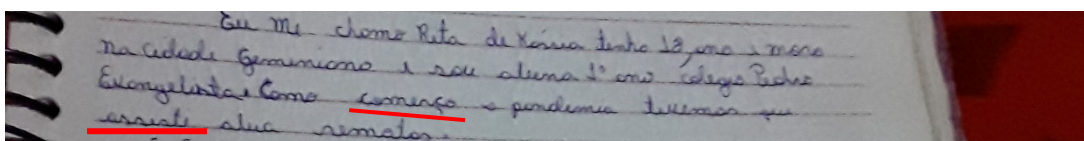 Eu me chamo Rita de Kássia tenho 18, ano e moro
na cidade Geminiano e sou aluna 1º ano colegio Pedro
Evangelista. Como começo a pandemia tivemos que
assisti alua remotas.